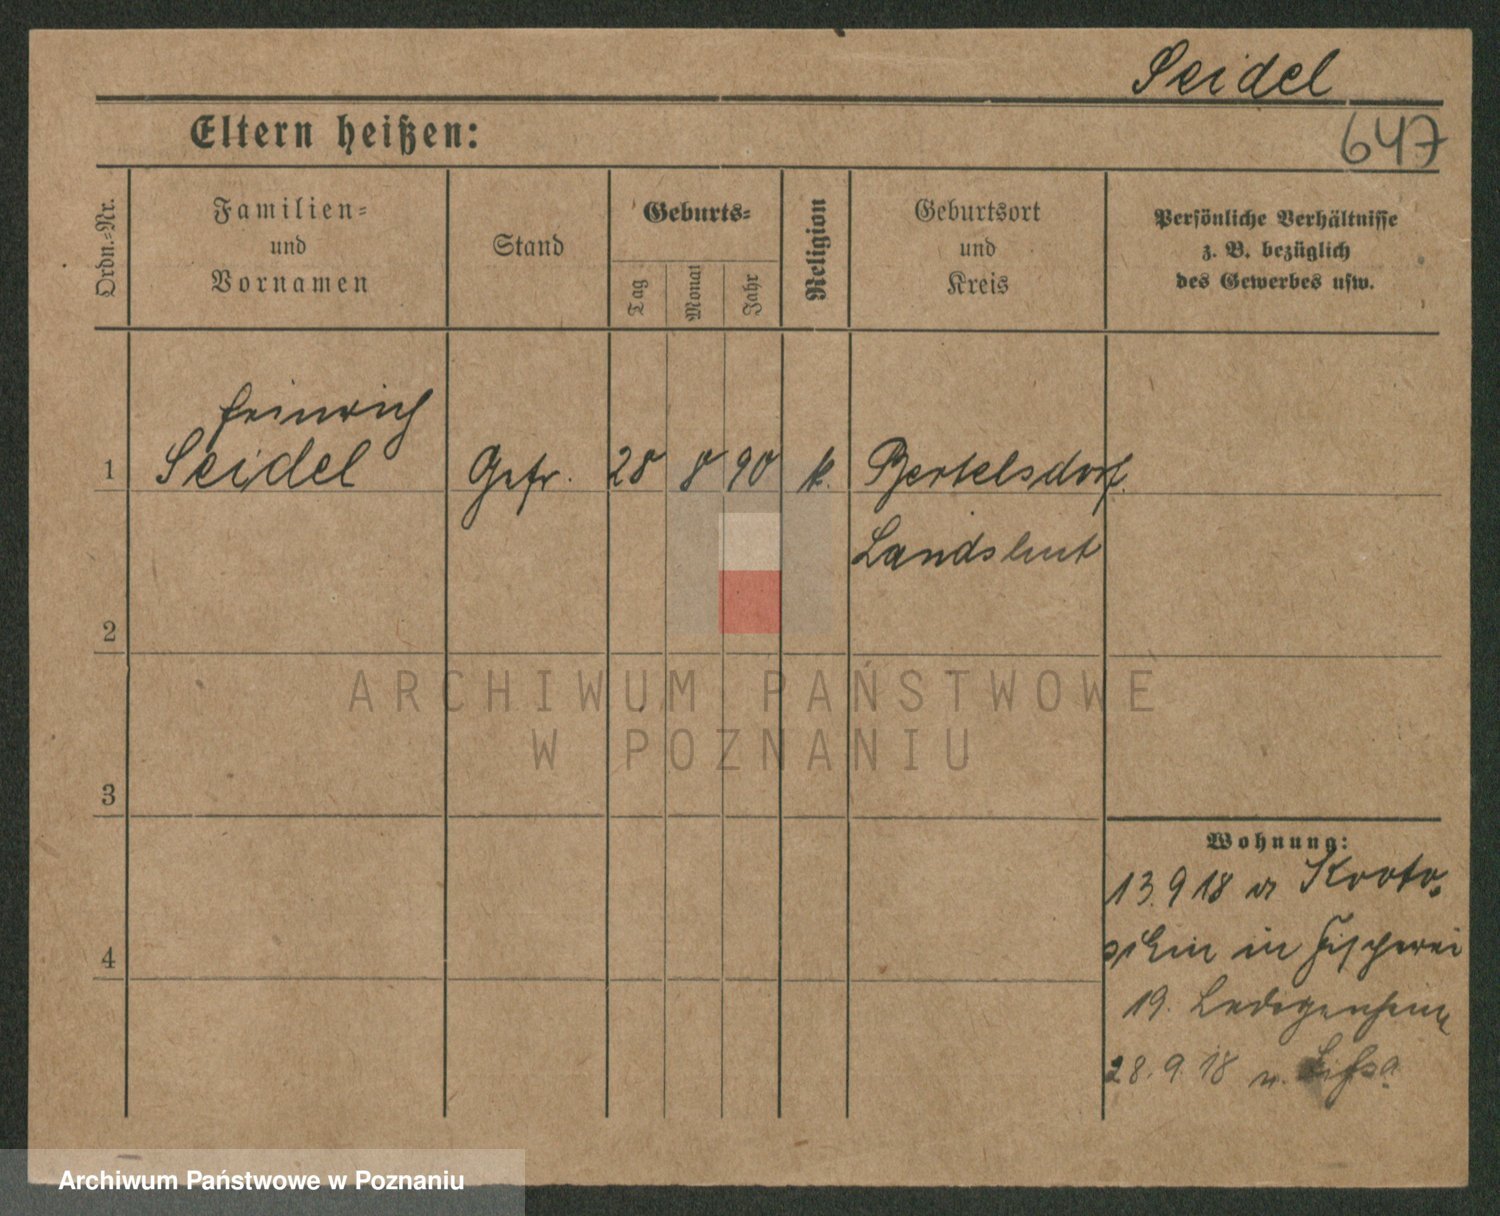 Seidel
647
Eltern heißen:
Ordn.-Nr.
Familien-
und
Vornamen
Stand
Geburts-
Tag
Monat
Jahr
Religion
Geburtsort
und
Kreis
Persönliche Verhältnisse
z. B. bezüglich
des Gewerbes usw.
Heinrich
1 Seidel Gefr. 28 8 90 k. Bertelsdorf
Landshut
2
ARCHIWUM PAŃSTWOWE
W POZNANIU
3
Wohnung:
13.9.18 v Kroto-
schin in Fischerei
4
19. Ledigenheim
28.9.18 n. Lissa
Archiwum Państwowe w Poznaniu